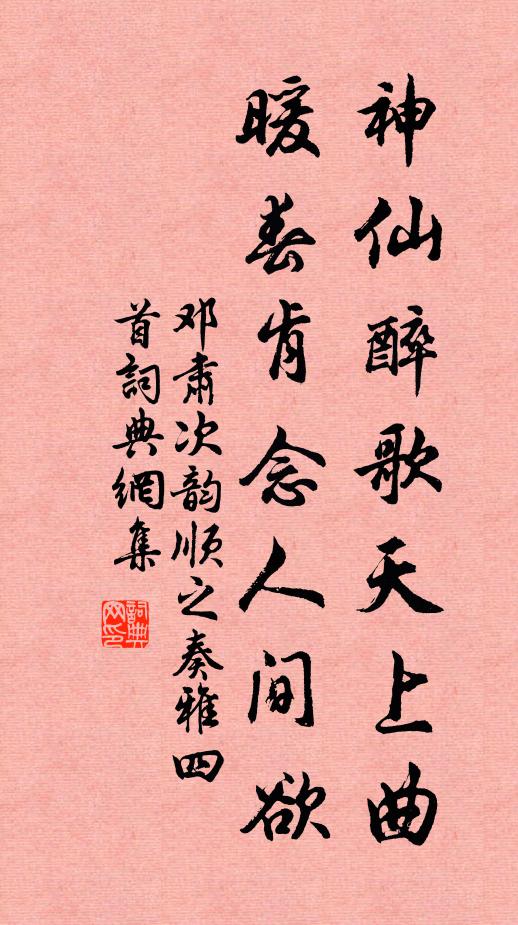 神仙醉歌天上曲
暖春肯念人间欲
邓肃次韵顺之奏雅四
首詞典網集
詞典网印